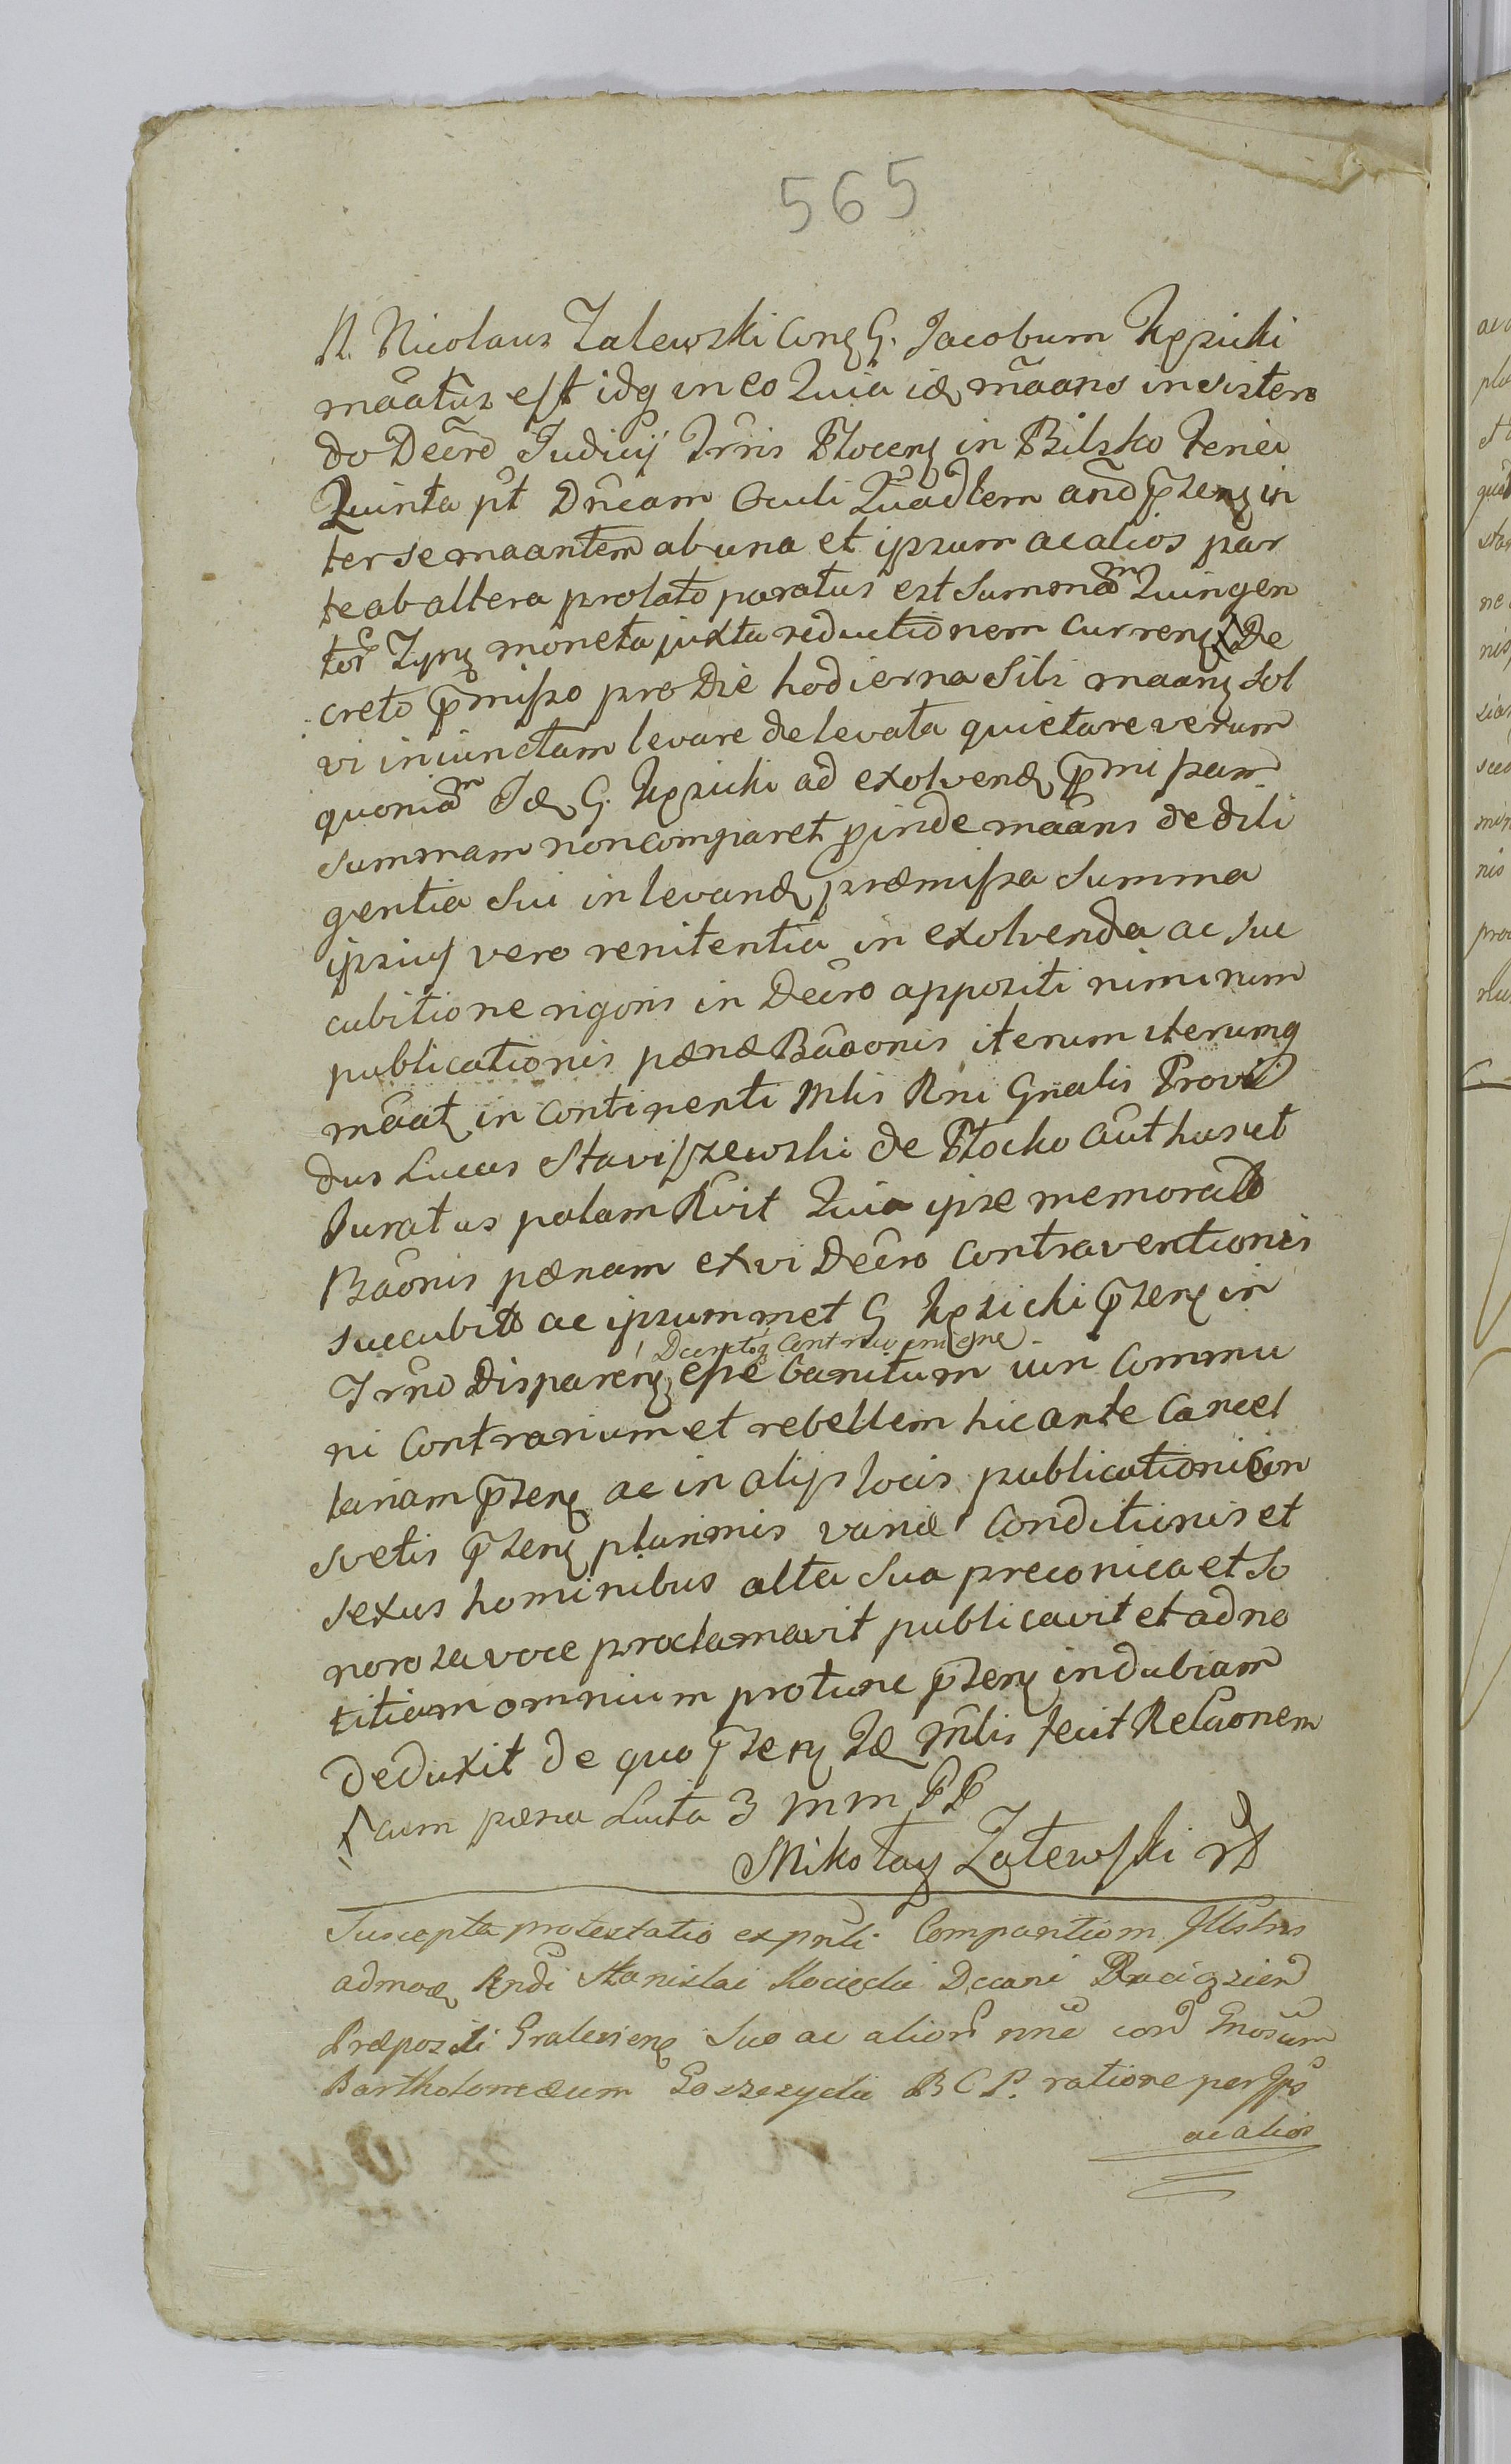 565
N. Nicolaus Zalewski Conq G. Jacobum Kęsicki
mãatus est idq in eo Quia idę mãans insisten
do Decro Judicij Trris Płocenę in Bilsko Feriei
Quinta pt Dnicam Oculi Quadlem anõ p̃senę in
ter se maantem ab una et ipsum ac alios par
te ab altera prolato paratus est Summam Quingen
tor Zpnę moneta juxta reductionem currenę De
creto p̃misso pro Die hodierna Sibi maanę Sol
vi iniunctam levare de levata quietare verum
quoniam Idę G. Kęsicki ad exolvendę p̃missam
summam non compraret p̃inde mãans de dili
gentia Sui in levandę præmissa Summa
ipsius vero renitentia in exolvenda ac suc
cubitione rigoris in Decro appositi nimirum
publicationis pænæ Bãaonis iterum iterumq
mãatę in continenti Mlis Rni Gnalis Provi
dus Lucas Stawiszewski de Płocko Auth hus et
Juratus palam Rvit Quia ipse memorato
Bãonis pænam ex vi Decro Contraventionis
succubito ac ipsummet G Kęsicki p̃senę in
Decretoq Contravenienę
Trno Disparenę esse banitum iuri Commu
ni Contrarium et rebellem hic ante Cancel
lariam p̃senę ac in alijs locis publicationi Con
svetis p̃senę plurimis variæ Conditionis et
sexus hominibus alta Sua preconica et So
norosa voce proclamavit publicavit et ad no
titiam omnium pro tunc p̃senę indubiam
deduxit de quo p̃senę Idę Mlis fecit Relãonem
cum pæna Luita 3 m m PP
Mikołay Zalewski
Suscepta protestatio ex pnti Comparitiom Jllstris
admodę Rndi Stanislai Kocięcki Decani Raciązien
Præpositi Gralevienę Suo ac alior nne con Gnosum
Bartholomæum Goszczycki B C P. ratione per Jps
ac alios